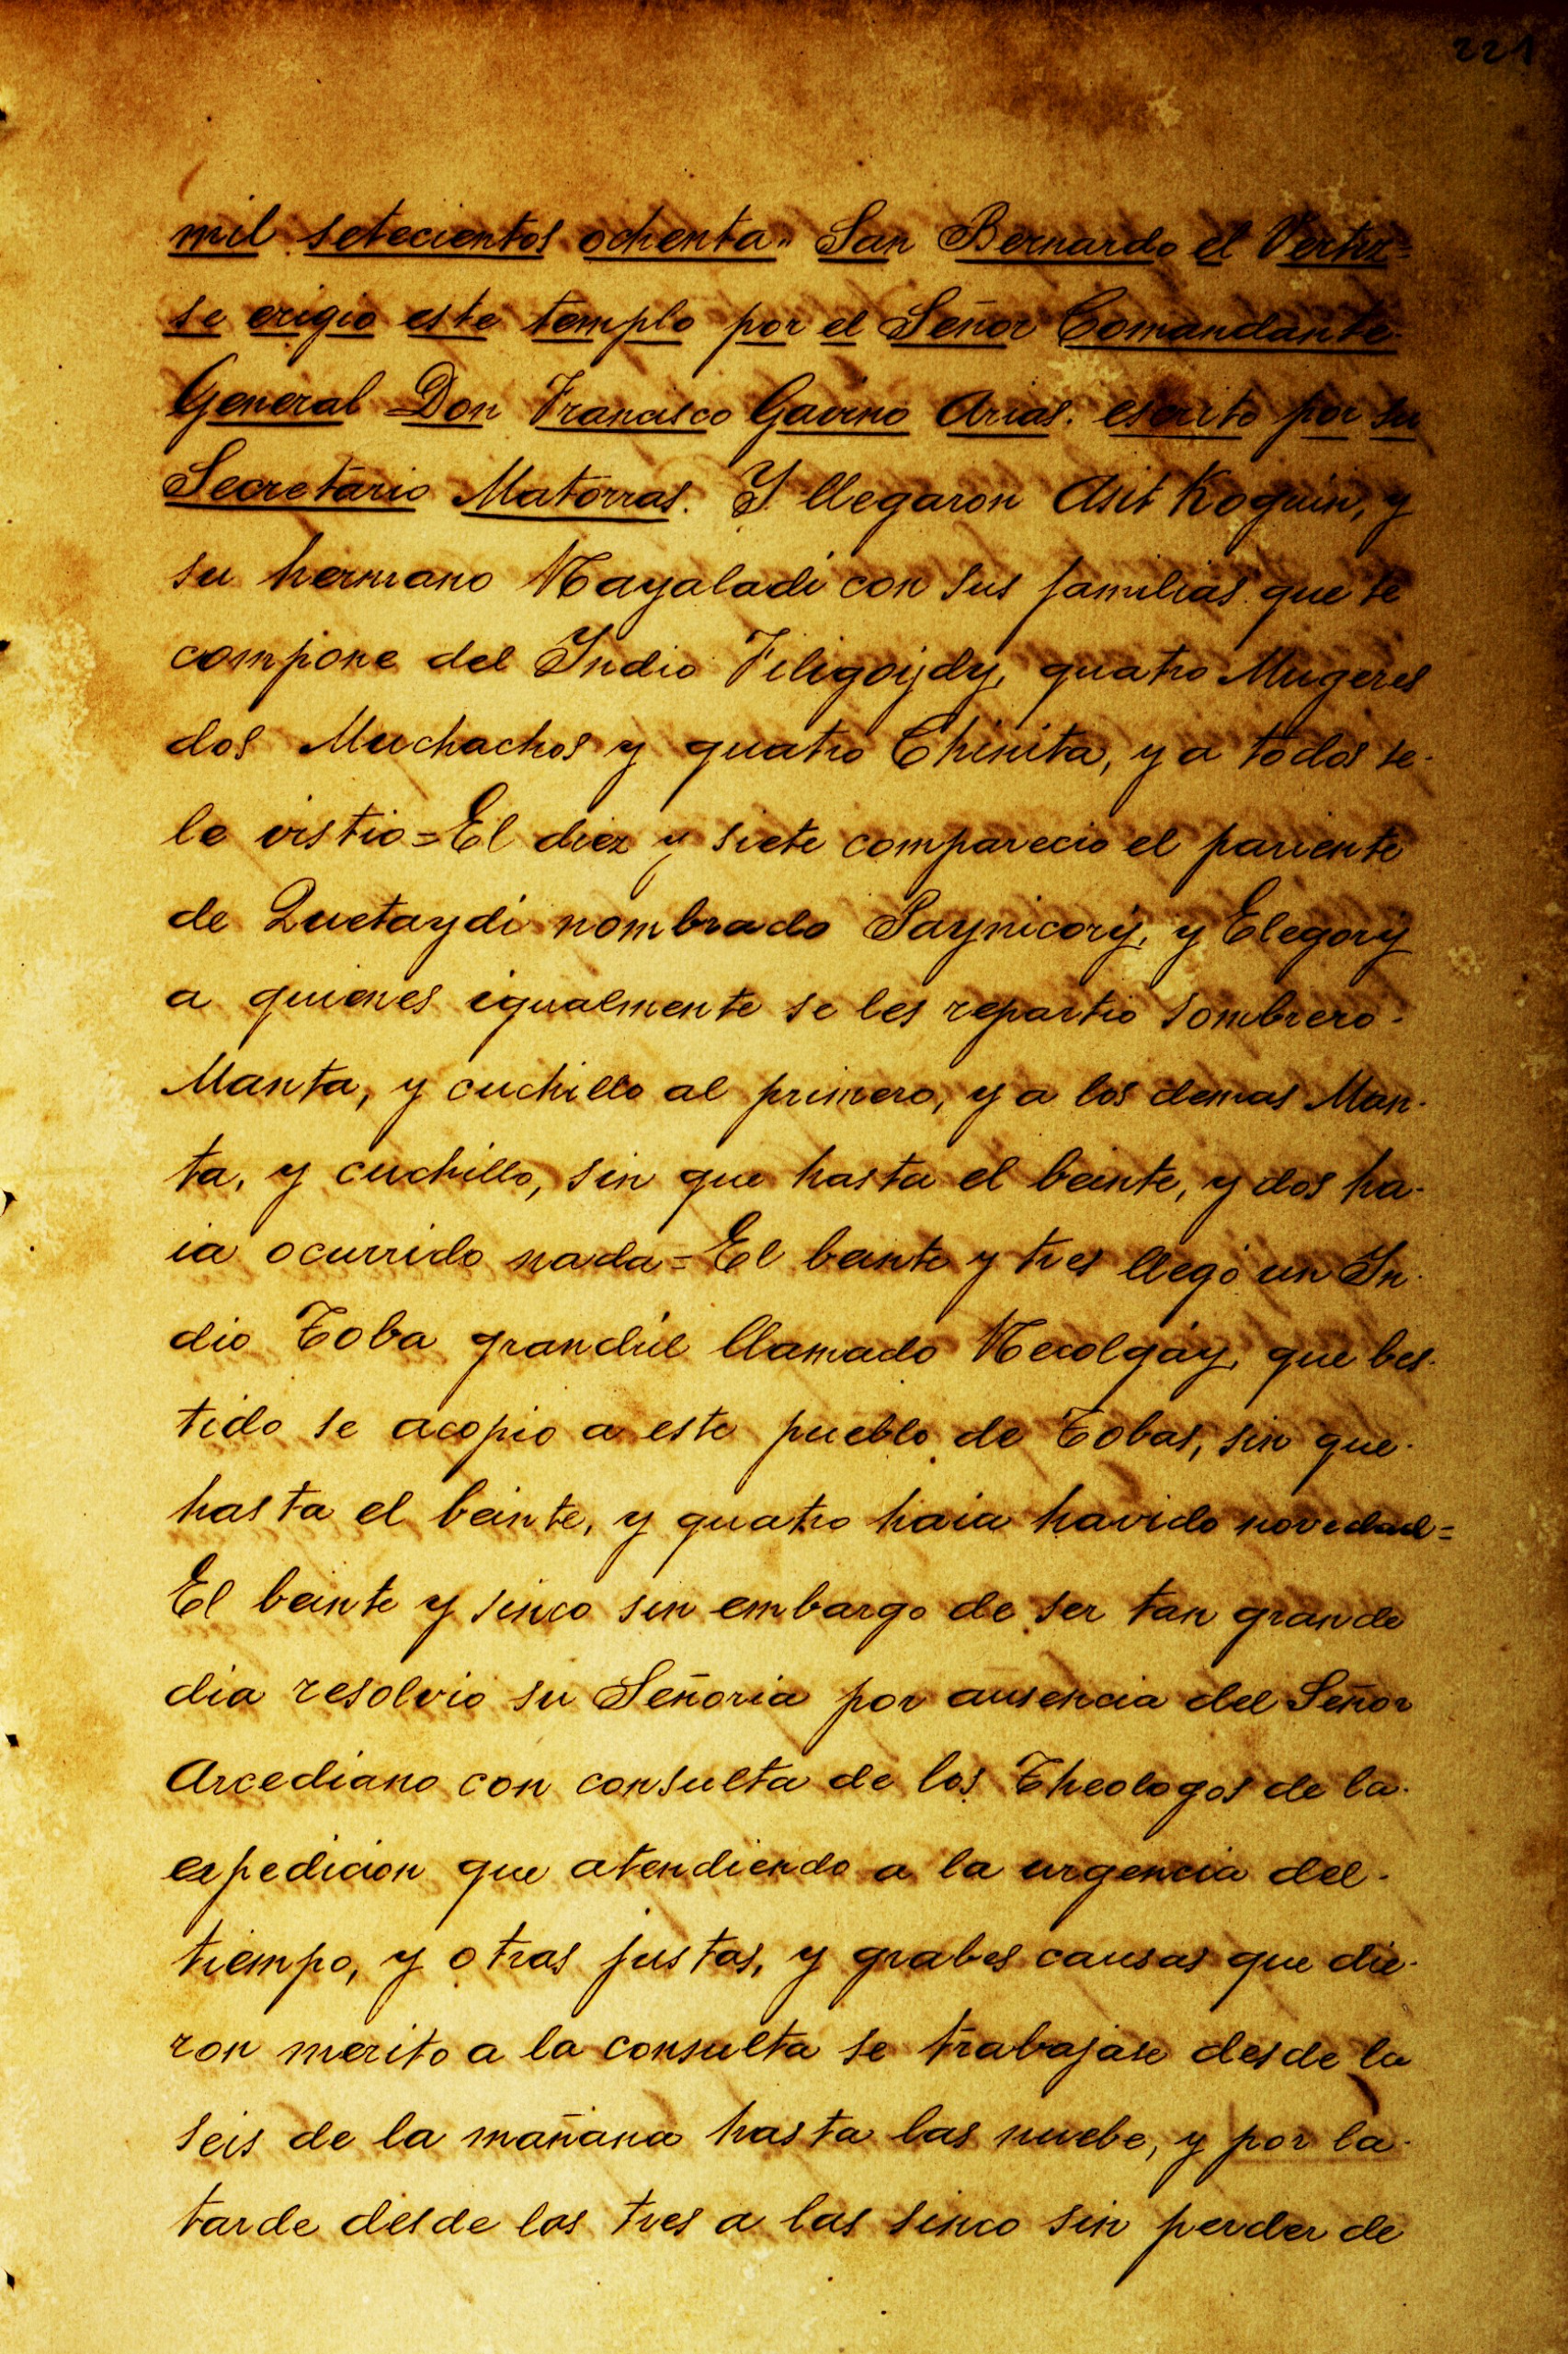 221
mil setecientos ochenta„ San Bernardo el Vertiz=
se erigio este templo por el Señor Comandante
General Don Francisco Gavino Arias. escrito por su
Secretario Matorras. Y llegaron Asit Koguin, y
su hermano Nayaladi con sus familias que se
compone del Indio Filigoijdy, quatro Mugeres
dos Muchachos y quatro Chinita, y a todos se-
le vistio=El diez y siete comparecio el pariente
de Quetaydi nombrado Saynicorij, y Elegorij
a quienes igualmente se les repartio sombrero-
Manta, y cuchillo al primero, y a los demas Man-
ta, y cuchillo, sin que hasta el beinte, y dos ha-
ia ocurrido nada=El beinte y tres llegó un In-
dio Toba grandul llamado Necolgay, que bes-
tido se acopio a este pueblo de Tobas, sin que-
hasta el beinte, y quatro haia havido novedad=
El beinte y sinco sin embargo de ser tan grande
dia resolvio su Señoria por ausencia del Señor
Arcediano con consulta de los Theologos de la-
expedicion que atendiendo a la urgencia del-
tiempo, y otras justas, y grabes causas que die-
ron merito a la consulta se trabajase desde la
seis de la mañana hasta las nuebe, y por la-
tarde desde las tres a las sinco sin perder de